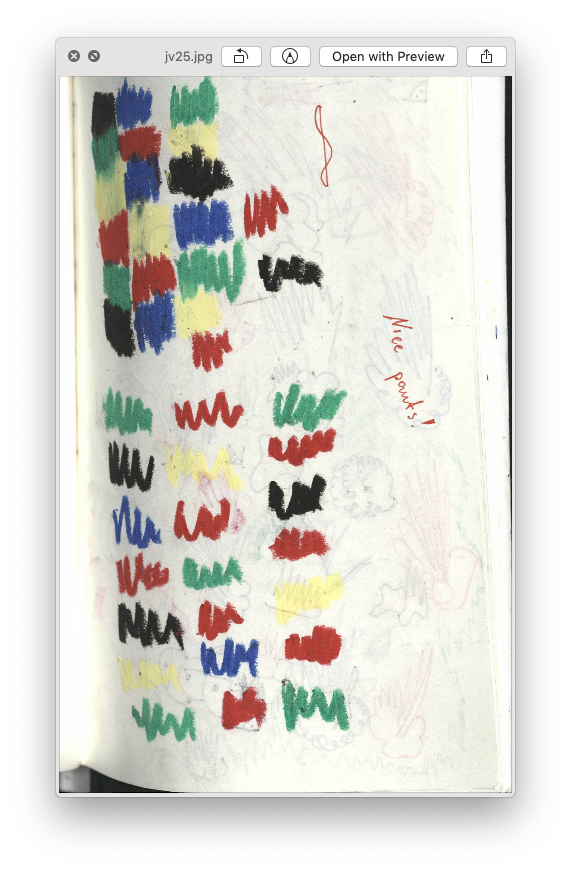 jv25.jpg
Open with Preview
Nice
pants!